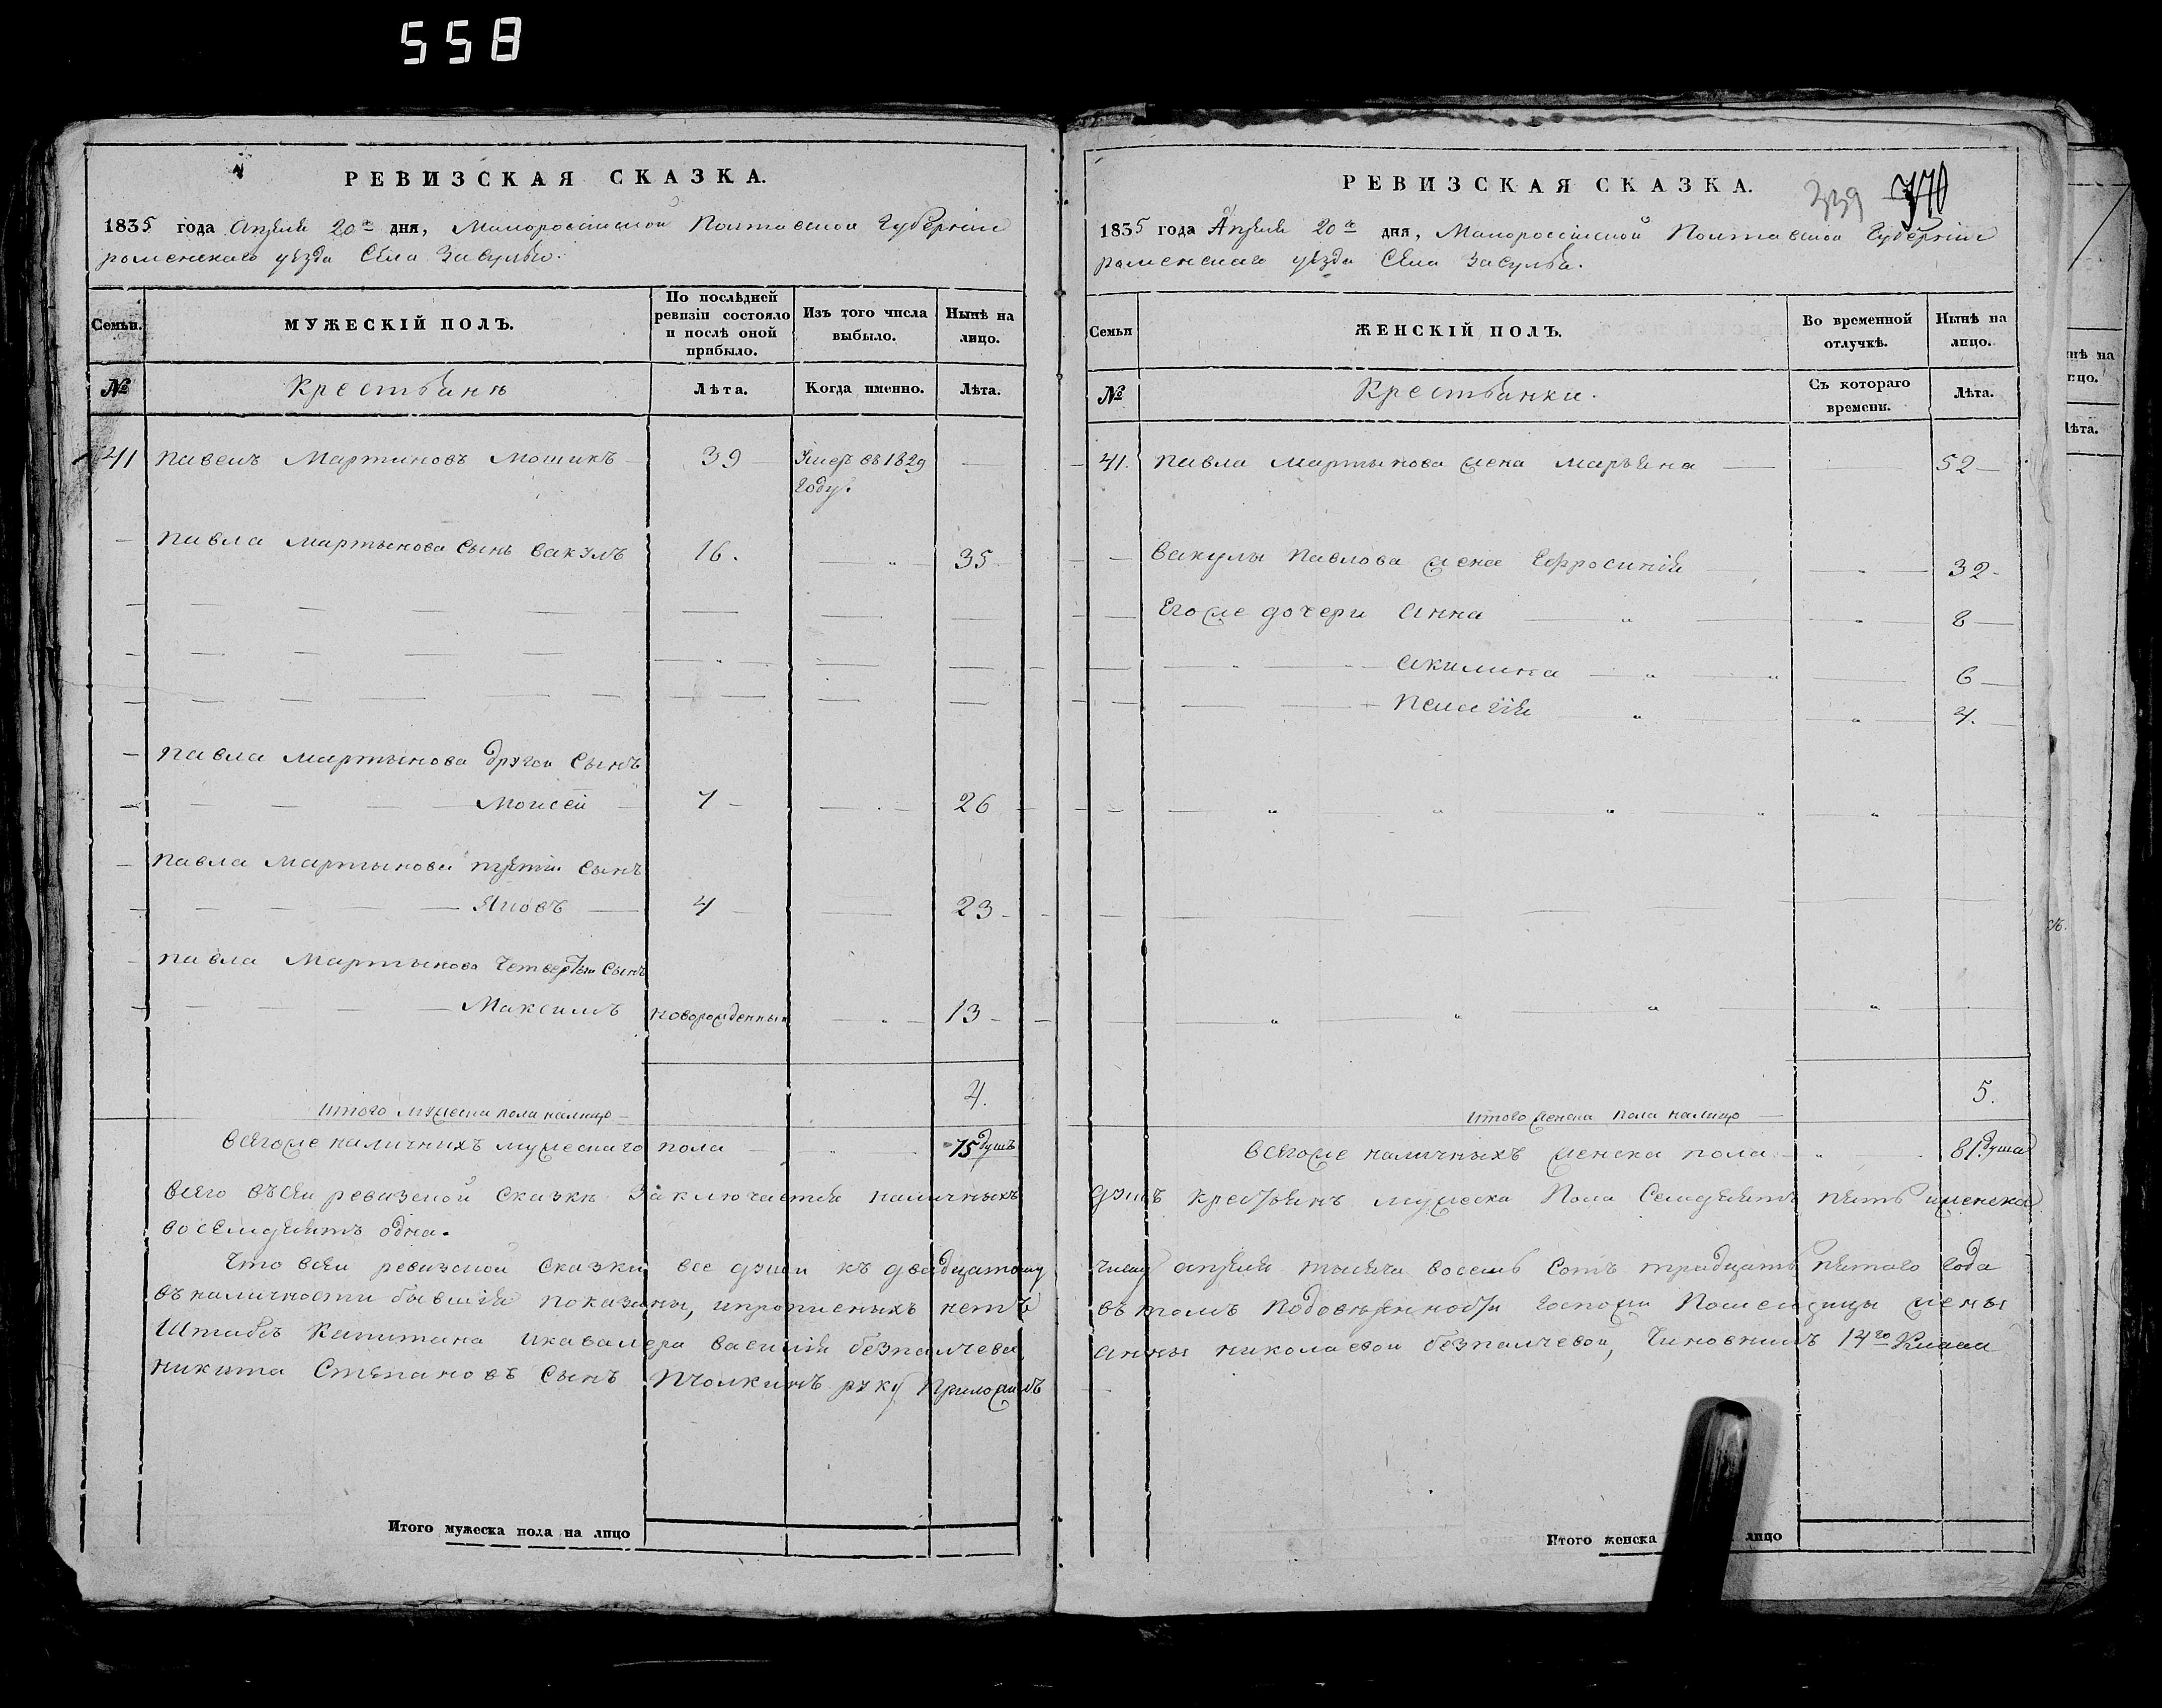 558
РЕВИЗСКАЯ СКАЗКА.
1835 года Апреля 20го дня, Малоросійской Полтавской Губерніи
роменскаго уѣзда Села Засулья.
Семьи.
МУЖЕСКІЙ ПОЛЪ.
По послѣдней ревизіи состояло и послѣ оной прибыло.
Изъ того числа выбыло.
Нынѣ на лицо.
№
Крестьянѣ
Лѣта.
Когда именно.
Лѣта.
41 Павелъ Мартиновъ Мошикъ 39 Умеръ въ 1829 —
Году.
Павла Мартынова Сынъ Вакулъ 16. 35
Павла Мартынова другой Сынъ
Моисей 7 26
Павла Мартынова третій Сынъ
Яковъ 4 23
Павла Мартынова Четвертый Сынъ
Максимъ новорожденный 13
4.
итого мужеска пола налицо
Всегоже наличнихъ мужескаго пола 75 душъ
Всего въ сей ревизской Сказкѣ Заключается наличныхъ
восемдесятъ одна.
Что въ сей ревизской Сказки все души къ двадцатому
въ наличности бывшія показаны, и прописныхъ нетъ
Штабсъ Капитана и кавалера Василія безпалчева
Никита Степановъ Сынъ Пчолкинъ руку Приложилъ
Итого мужеска пола на лицо
РЕВИЗСКАЯ СКАЗКА.
339 770
1835 года Апреля 20го дня, Малоросійской Полтавской Губерніи
роменскаго уѣзда Села Засулья.
Семьи
ЖЕНСКІЙ ПОЛЪ.
Во временной отлучкѣ.
Нынѣ на лицо.
№
Крестьянки.
Съ котораго времени.
Лѣта.
41. Павла Мартынова жена Марьяна 52
Вакулы Павлова жена Ефросинія 32
Егоже дочери Анна 8
Акилина 6
Пелагія 4.
5.
итого женска пола налицо
Всегоже наличныхъ женска пола 81. душа
душъ крестьянъ мужеска Пола Семдесятъ пять и женска
числу апреля тысяча восемь Сотъ тридцать пятаго года
въ томъ по доверенности Госпожи Помещицы жены
Анны николаевой безпалчевой, Чиновникъ 14го Класса
Итого женска лицо